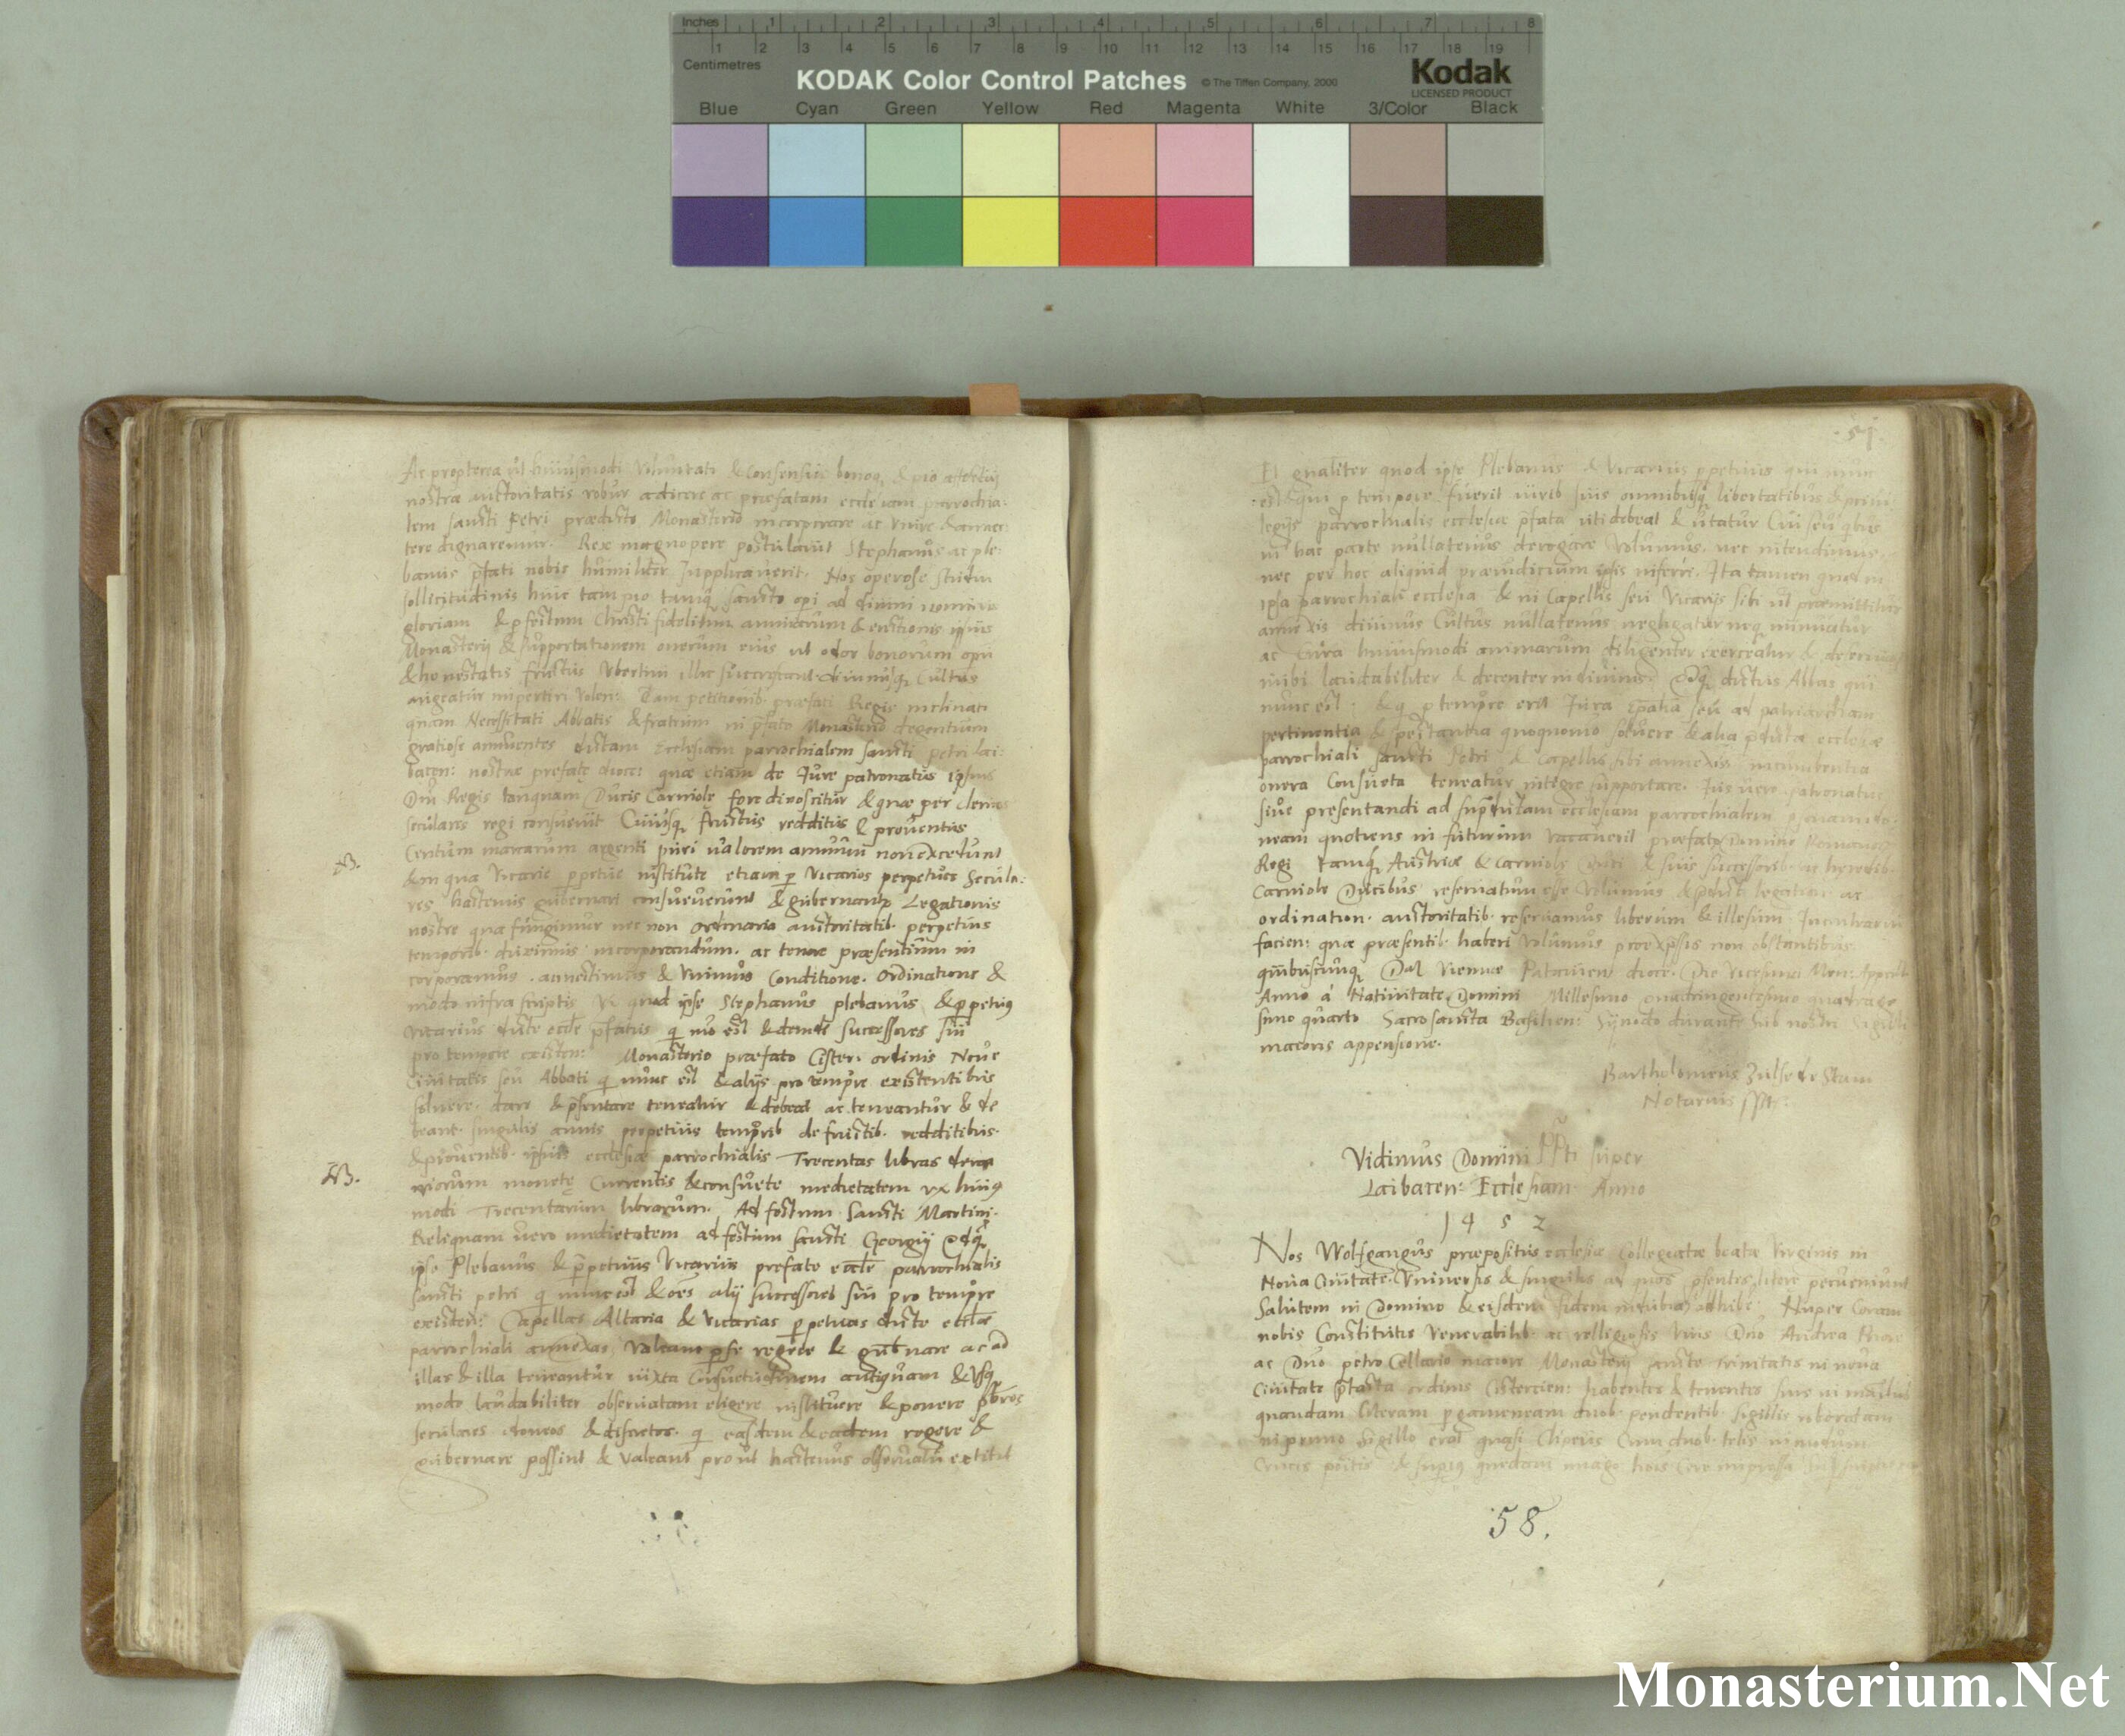 Inches 1 2 3 4 5 6 7 8
1 2 3 4 5 6 7 8 9 10 11 12 13 14 15 16 17 18 19
Centimetres
KODAK Color Control Patches © The Tiffen Company, 2000 Kodak
LICENSED PRODUCT
Blue Cyan Green Yellow Red Magenta White 3/Color Black
Ac propterea ut huiusmodi Voluntati & consensui
nostræ auctoritatis robur adicere ac præfatam ecclesiam parrochia-
lem sancti Petri prædicto Monasterio incorporare ac Vnire & annec-
tere dignaremur. Rex magnopere postulavit Stephanus ac ple-
banus p̄fati nobis humiliter supplicaverit. Nos operose
sollicitudinis huic tam pio tamq̄ sancto opi ad divini nominis
gloriam & Christi fidelium animarum &
Monasterij & supportationem onerum eius ut odor bonorum
& honestatis fructus Vbertim illic Cultus
augeatur impertiri Volen: præfati Regis inclinati
quam Necessitati Abbatis & fratrum in p̄fato Monasterio degentium
gratiose annuentes dictam Ecclesiam parrochialem sancti petri lai-
bacen: nostræ prefate dioce: quæ etiam de Jure patronatus ipsius
Dni Regis tanquam Ducis Carniole fore dinoscitur & quæ per
seculares regi consuevit Cuiusq, fructus redditus & proventus
Centum marcarum argenti puri valorem annuum non excedunt
& in qua Vicarie perpetue institute etiam p Vicarios perpetuos Secula-
res hactenus gubernari consueverunt & gubernantur Legationis
nostre qua fungimur nec non ordinaria auctoritatib. perpetuis
temporib. duximus incorporandum. ac tenore præsentium in
corporamus. annectimus & Vnimus Conditione. Ordinatione &
modo infra scriptis quod ipse Stephanus plebanus & perpetuus
Vicarius dicte eccle p̄fatus q nu͂c est & deinde successores sui
pro tempore existen: Monasterio præfato Cister: ordinis Noue
Ciuitatis seu Abbati q nunc est & alijs pro tempore existentibus
solvere. dare & p̄sentare teneatur & debeat ac teneantur & de
beant. singulis annis perpetuis temporib de fructib. redditibus.
& proventib. ipsius ecclesiæ parrochialis Trecentas libras dena
riorum monetę Currentis & consuete medietatem huius
modi Trecentarum librarum. Ad festum Sancti Martini.
Reliquam vero medietatem ad festum sancti Georgij
ipse Plebanus & perpetuus Vicarius prefate eccle parrochialis
sancti petri q nunc est & oēs alij successores sui pro tempore
existen: Capellas Altaria & Vicarias perpetuas dicte eccliæ
parrochiali annexas, Valeant regere & gubnare ac ad
illas & illa teneantur iuxta Consuetudinem antiquam & Vsq
modo laudabiliter observatam eligere instituere & ponere pbros
seculares idoneos & discretos. q easdem & eadem regere &
gubernare possint & Valeant prout hactenus observatu extitit
NB.
NB.
Et qualiter quod ipse Plebanus & Vicarius ppetuus qui nunc
est & qui p tempore fuerit iurib suis omnibusq libertatibus & privi
legijs parrochialis ecclesiæ p̄fata uti debeat & utatur Cui seu quibus
in hac parte nullatenus derogare Volumus. nec intendimus.
nec per hoc aliquid præiudicium ipsis inferri. Ita tamen quod in
ipsa parrochiali ecclesia & in Capellis seu Vicarijs sibi ut præmittitur
annexis divinus Cultus nullatenus negligatur neq minuatur
ac Cura huiusmodi animarum diligenter exerceatur &
inibi laudabiliter & decenter in divinis dictus Abbas qui
nunc est. & q p tempore erit Jura seu ad patriarcham
pertinentia & spectantia quoquomo solvere & alia p̄dictæ ecclesiæ
parrochiali sancti Petri & Capellis sibi annexis incumbentia
onera Consueta teneatur integre supportare. Jus vero patronatus
sive presentandi ad supradictam ecclesiam parrochialem
neam quotiens in futurum vacaverit præfato Domino Romanor
Regi tamq̄ Austriæ & Carniole Duci & suis successorib. ac heredib.
Carniole Ducibus reservatum esse Volumus & legation. ac
ordination. auctoritatib. reservamus liberum & illesum. In contrariu
facien: quæ præsentib. haberi Volumus pro expressis non obstantibus
quibuscunq Dat Viennæ Patavien dioce. Die Vicesima Men:
Anno á Nativitate Domini Millesimo quadringentesimo quadrage
simo quarto Sacrosancta Basilien: Synodo durante sub nostri sigilli
maioris appensione.
Bartholomeus de Stam
Notarius
Vidimus Domini super
Laibacen: Ecclesiam Anno
1 4 5 2
Nos Wolfgangus præpositus ecclesiæ Collegiatæ beatæ Virginis in
Noua Ciuitate. Vniuersis & singulis ad quos p̄sentes litere pervenerint
Salutem in Domino & eisdem fidem indubiā adhibe. Nuper Coram
nobis Constitutis Venerabilib. ac relligiosis viris Dno Andrea Priore
ac Dno petro Cellario maiore Monasterij sancte trinitatis in noua
Ciuitate p̄tacta ordinis Cistercien: habentes & tenentes suis in manibus
quandam literam pgameneam duob. pendentib. sigillis roboratam
in primo sigillo erat quasi Clipeus Cum duob. telis in modum
Crucis positis & superius quedam imago
58.
Monasterium.Net